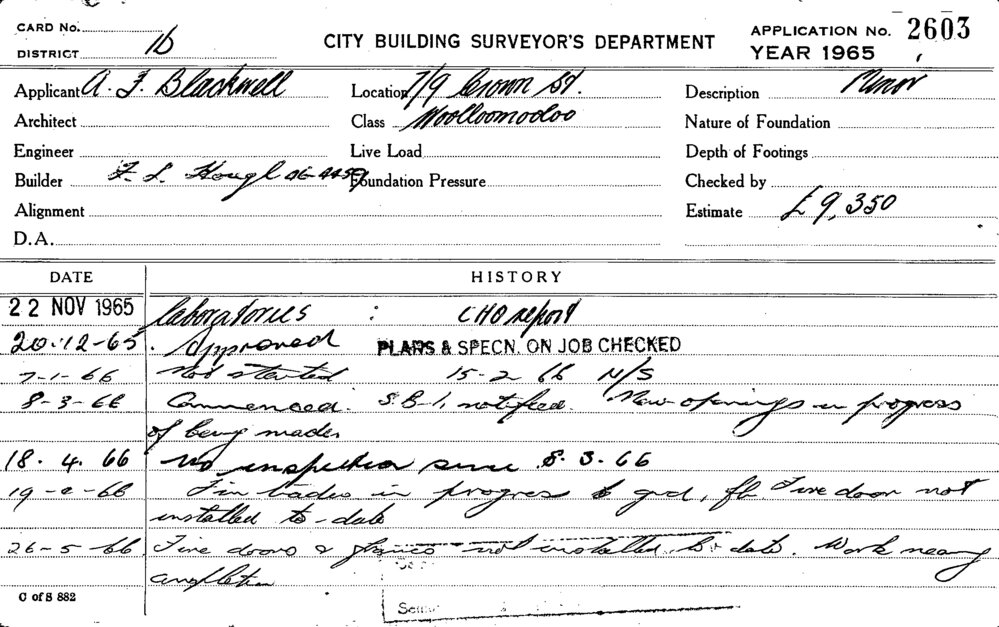 CARD No.
DISTRICT 1b
CITY BUILDING SURVEYOR'S DEPARTMENT
APPLICATION No. 2603
YEAR 1965
Applicant A. F. Blackwell Location 7/9 Crown St. Description Minor
Architect Class Woolloomooloo Nature of Foundation
Engineer Live Load Depth of Footings
Builder F. L. Hough 26-4459 Foundation Pressure Checked by
Alignment Estimate £9,350
D.A.
DATE HISTORY
22 NOV 1965 Laboratories : CHO report
20-12-65 Approved PLANS & SPECN. ON JOB CHECKED
7-1-66 Not started 15-2 66 N/S
8-3-66 Commenced. S.B-1, notified. New openings in progress
of being made
18.4.66 No inspection since 8.3.66
66 in progress to grd, Fire door not
installed to-date
26-5-66 Fire doors & not installed to date. Work nearing
completion
C of S 882